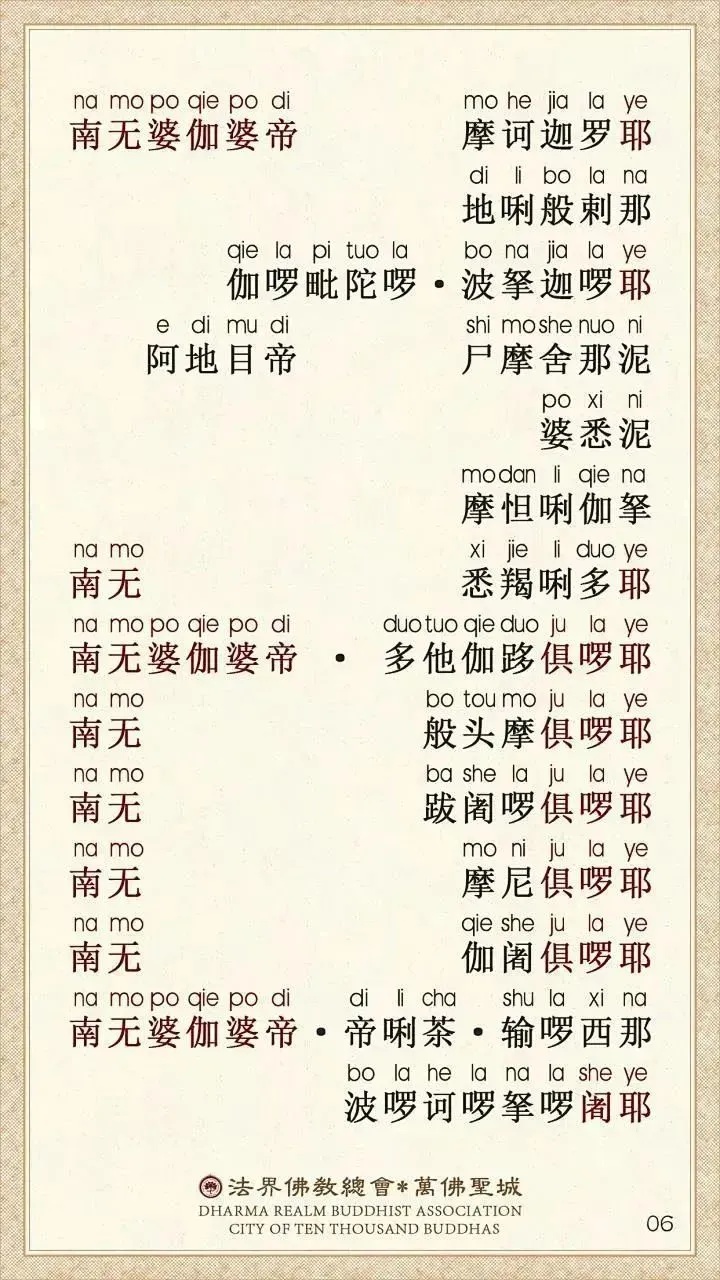 na mo po qie po di mo he jia la ye
南无婆伽婆帝 摩诃迦罗耶
di li bo la na
地唎般剌那
qie la pi tuo la bo na jia la ye
伽啰毗陀啰·波拏迦啰耶
e di mu di shi mo she nuo ni
阿地目帝 尸摩舍那泥
po xi ni
婆悉泥
mo dan li qie na
摩怛唎伽拏
na mo xi jie li duo ye
南无 悉羯唎多耶
na mo po qie po di duo tuo qie duo ju la ye
南无婆伽婆帝·多他伽跢俱啰耶
na mo bo tou mo ju la ye
南无 般头摩俱啰耶
na mo ba she la ju la ye
南无 跋阇啰俱啰耶
na mo mo ni ju la ye
南无 摩尼俱啰耶
na mo qie she ju la ye
南无 伽阇俱啰耶
na mo po qie po di di li cha shu la xi na
南无婆伽婆帝·帝唎茶·输啰西那
bo la he la na la she ye
波啰诃啰拏啰阇耶
法界佛教總會*萬佛聖城
DHARMA REALM BUDDHIST ASSOCIATION
CITY OF TEN THOUSAND BUDDHAS
06